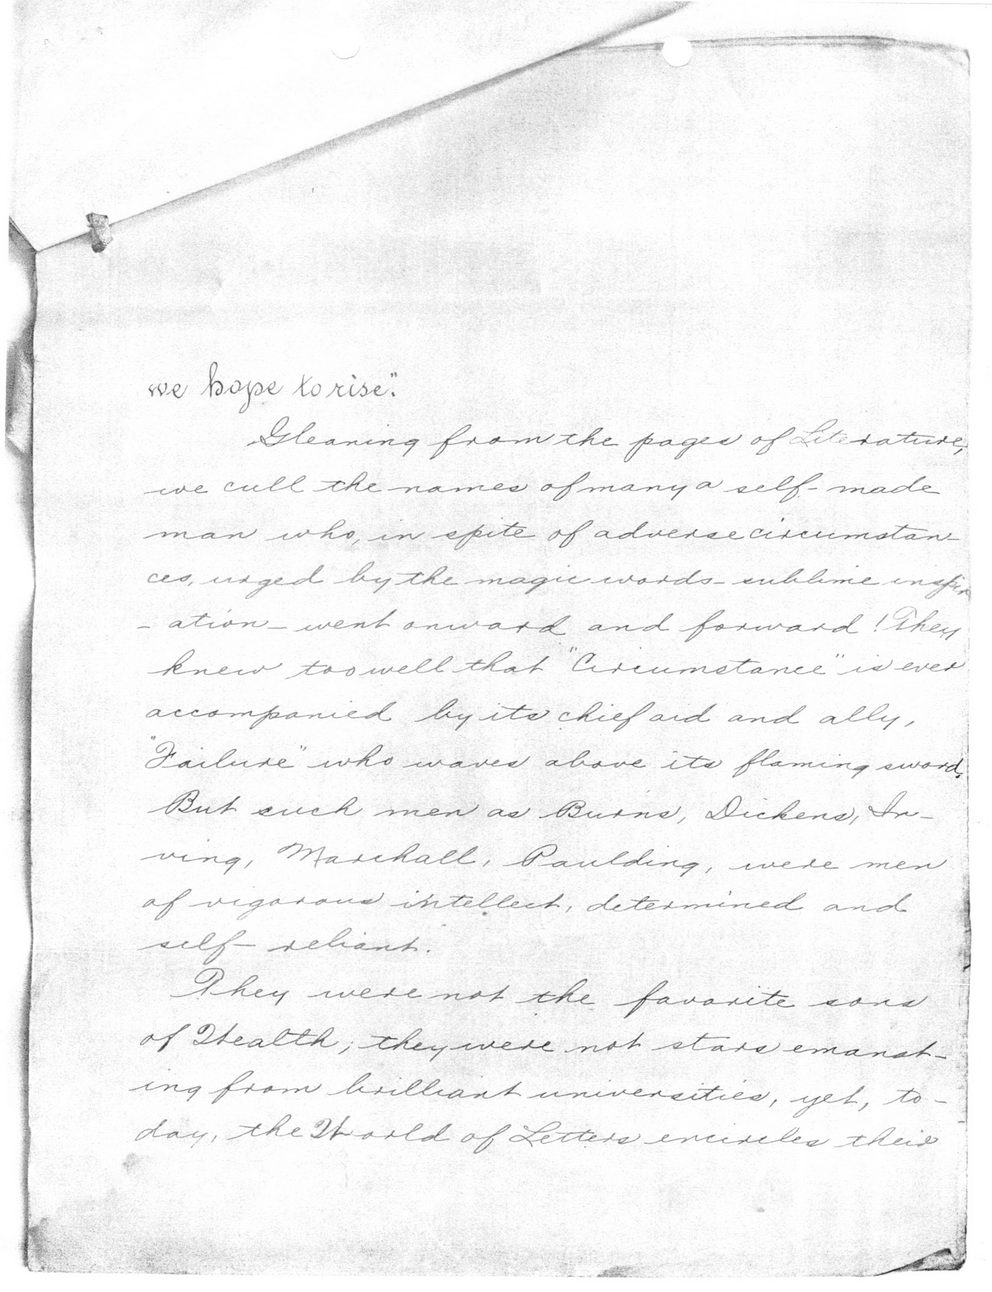 we hope to rise."
Gleaning from the pages of Literature,
we cull the names of many a self-made
man who, in spite of adverse circumstan-
ces, urged by the magic words - sublime inspir
- ation - went onward and forward! They
knew too well that "Circumstance" is ever
accompanied by its chief aid and ally,
"Failure" who waves above its flaming sword.
But such men as Burns, Dickens, Ir-
ving, Marshall, Paulding, were men
of vigorous intellect, determined and
self-reliant.
They were not the favorite sons
of Wealth; they were not stars emanat-
ing from brilliant universities, yet, to-
day, the World of Letters encircles their